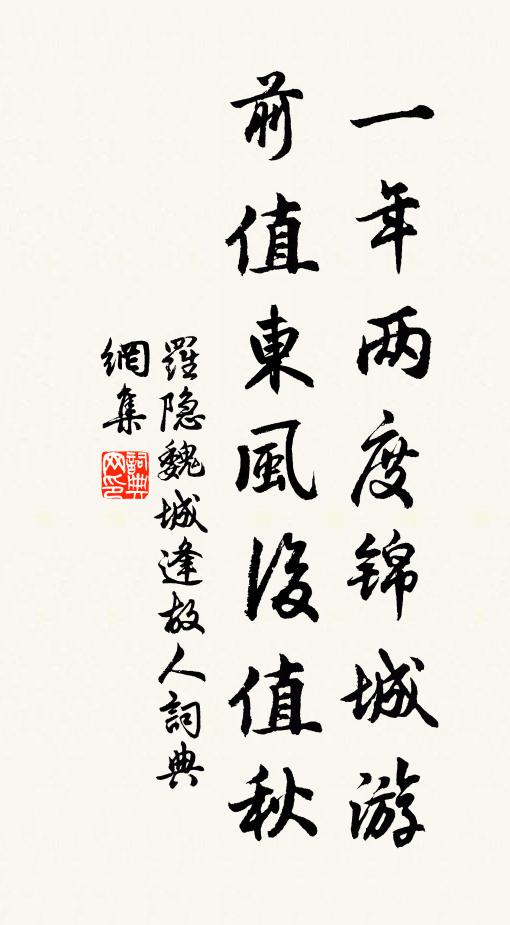 一年两度锦城游
前值東風後值秋
羅隐魏城逢故人詞典
網集
詞典网印